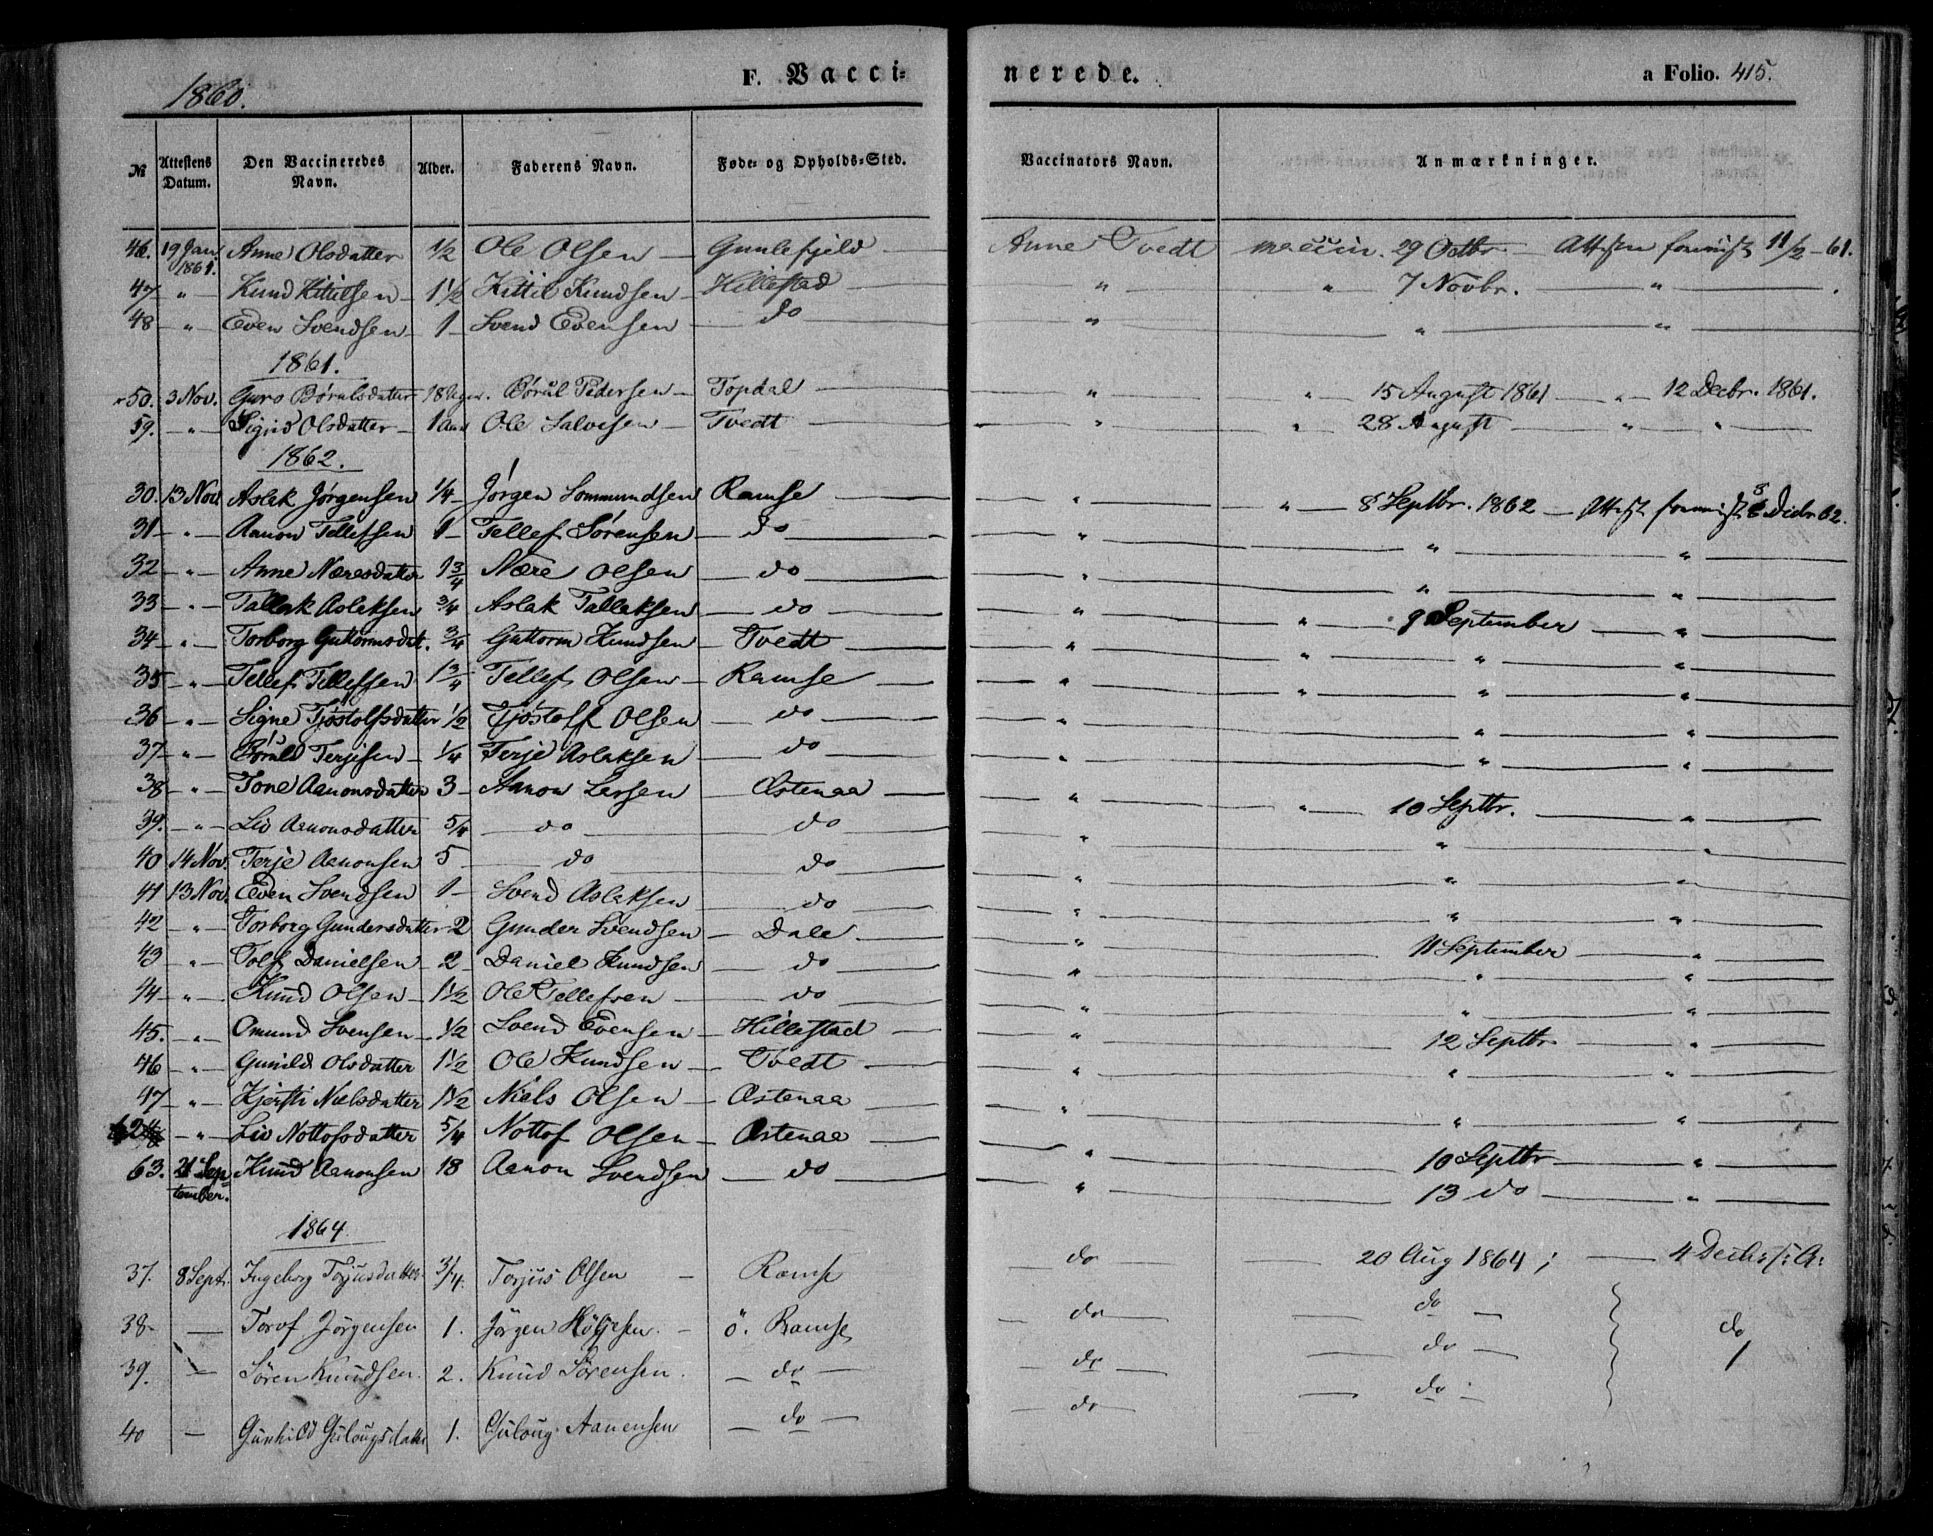 1860.
F. Vacci=
nerede.
a Folio. 415.
№ Attestens Datum. Den Vaccineredes Navn. Alder. Faderens Navn. Føde- og Opholds-Sted. Vaccinators Navn. Anmærkninger.
46. 19 Jan 1861. Anne Olsdatter 1/2 Ole Olsen — Gunlefjeld Anne Tvedt vaccin. 29 Octbr. — Attesten 11/2 - 61.
47 " Knud Kittilsen 1 1/2 Kittil Knudsen Hillestad " " 7 Novbr. "
48 " Even Svendsen 1 Svend Evensen do " " "
1861.
50. 3 Nov. Guro Børulsdatter Børul Pedersen Topdal " " 15 August 1861 " 12 Decbr. 1861.
59. " Sigrid Olsdatter 1 Ole Salvesen Tvedt " " 28 August " "
1862.
30. 13 Nov. Aslak Jørgensen 1/4 Jørgen Sommundsen Ramse " " 8 Septbr. 1862
31 " Aanon Tellefsen 1 Tellef Sørensen do " " "
32 " Anne Næresdatter 1 3/4 Nære Olsen do " " "
33 " Tallak Aslaksen 3/4 Aslak Tallaksen do " " 9 September "
34 " Torborg Guttormsdat. 3/4 Guttorm Knudsen Tvedt " " " "
35 " Tellef Tellefsen 1 3/4 Tellef Olsen Ramse " " " "
36 " Signe Tjøstolfsdatter 1/2 Tjøstolf Olsen do " " "
37 " Børuld Terjesen 1/4 Terje Aslaksen do " " "
38 " Tone Aanonsdatter 3 Aanon Larsen Østenaa " " 10 Septbr. "
39. " Liv Aanonsdatter 5/4 do do " " "
40 14 Nov. Terje Aanonsen 5 do do " "
41 13 Nov. Even Svendsen 1 Svend Aslaksen do " " "
42 " Torborg Gundersdatter 2 Gunder Svendsen Dale " 11 September "
43 " Tolf Danielsen 2 Daniel Knudsen do " " "
44 " Knud Olsen 1 1/2 Ole Tellefsen do " "
45. " Omund Svensen 1/2 Svend Evensen Hillestad " 12 Septbr "
46 " Gunild Olsdatter 1 1/2 Ole Knudsen Tvedt " " "
47 " Kjersti Nielsdatter 1 1/2 Niels Olsen Østenaa " " "
62 " Liv Nottofsdatter 5/4 Nottof Olsen Østenaa " 10 Septbr "
63. 21 September. Knud Aanonsen 18 Aanon Svendsen do " 13 do "
1864
37. 8 Sept. Ingeborg Torjusdatter 3/4. Torjus Olsen Ramse do 20 Aug 1864; 4 Decbr s: A:
38 — Torof Jørgensen 1. Jørgen Høljesen. ö. Ramse do do do
39. — Søren Knudsen 2. Knud Sørensen. do do do
40 — Gunhild Gulougsdatter 1. Guloug Aanensen do do do